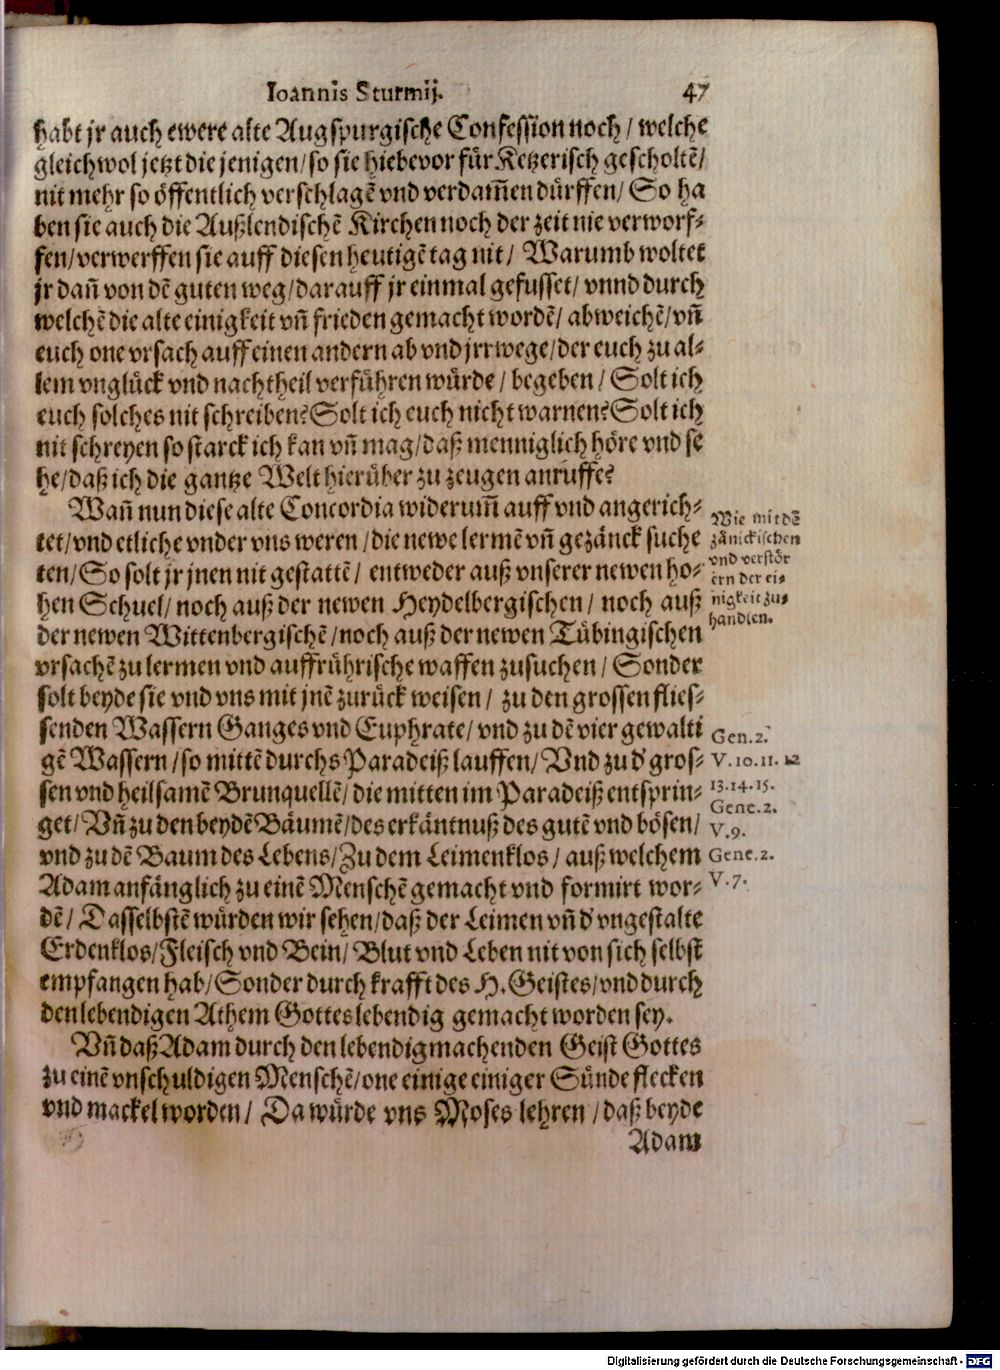 Ioannis Sturmij. 47
habt jr auch ewere alte Augspurgische Confession noch / welche
gleichwol jetzt die jenigen / so sie hiebevor für Ketzerisch gescholtē /
nit mehr so öffentlich verschlagē vnd verdam̄en dürffen / So ha
ben sie auch die Außlendischē Kirchen noch der zeit nie verworf-
fen / verwerffen sie auff diesen heutigē tag nit / Warumb woltet
jr dañ von dē guten weg / darauff jr einmal gefusset / vnnd durch
welchē die alte einigkeit vñ frieden gemacht wordē / abweichē / vñ
euch one vrsach auff einen andern ab vnd jrrwege / der euch zu al-
lem vnglück vnd nachtheil verführen würde / begeben / Solt ich
euch solches nit schreiben? Solt ich euch nicht warnen? Solt ich
nit schreyen so starck ich kan vñ mag / daß menniglich höre vnd se
he / daß ich die gantze Welt hierüber zu zeugen anruffe?
Wañ nun diese alte Concordia widerum̄ auff vnd angerich-
tet / vnd etliche vnder vns weren / die newe lermē vñ gezänck suche
ten / So solt jr jnen nit gestattē / entweder auß vnserer newen ho-
hen Schuel / noch auß der newen Heydelbergischen / noch auß
der newen Wittenbergischē / noch auß der newen Tübingischen
vrsachē zu lermen vnd auffrührische waffen zusuchen / Sonder
solt beyde sie vnd vns mit jnē zurück weisen / zu den grossen flies-
senden Wassern Ganges vnd Euphrate / vnd zu dē vier gewalti
gē Wassern / so mittē durchs Paradeiß lauffen / Vnd zu d' gros-
sen vnd heilsamē Brunquellē / die mitten im Paradeiß entsprin-
get / Vñ zu den beydē Bäumē / des erkäntnuß des gutē vnd bösen /
vnd zu dē Baum des Lebens / Zu dem Leimenklos / auß welchem
Adam anfänglich zu einē Menschē gemacht vnd formirt wor-
dē / Dasselbstē würden wir sehen / daß der Leimen vñ d' vngestalte
Erdenklos / Fleisch vnd Bein / Blut vnd Leben nit von sich selbst
empfangen hab / Sonder durch krafft des H. Geistes / vnd durch
den lebendigen Athem Gottes lebendig gemacht worden sey.
Vñ daß Adam durch den lebendigmachenden Geist Gottes
zu einē vnschuldigen Menschē / one einige einiger Sünde flecken
vnd mackel worden / Da würde vns Moses lehren / daß beyde
Adam
Wie mit dē
zänickischen
vnd verstör
ern der ei-
nigkeit zu-
handlen.
Gen.2.
V.10.11.12
13.14.15.
Gene.2.
V.9.
Gene.2.
V.7.
Digitalisierung gefördert durch die Deutsche Forschungsgemeinschaft - DFG